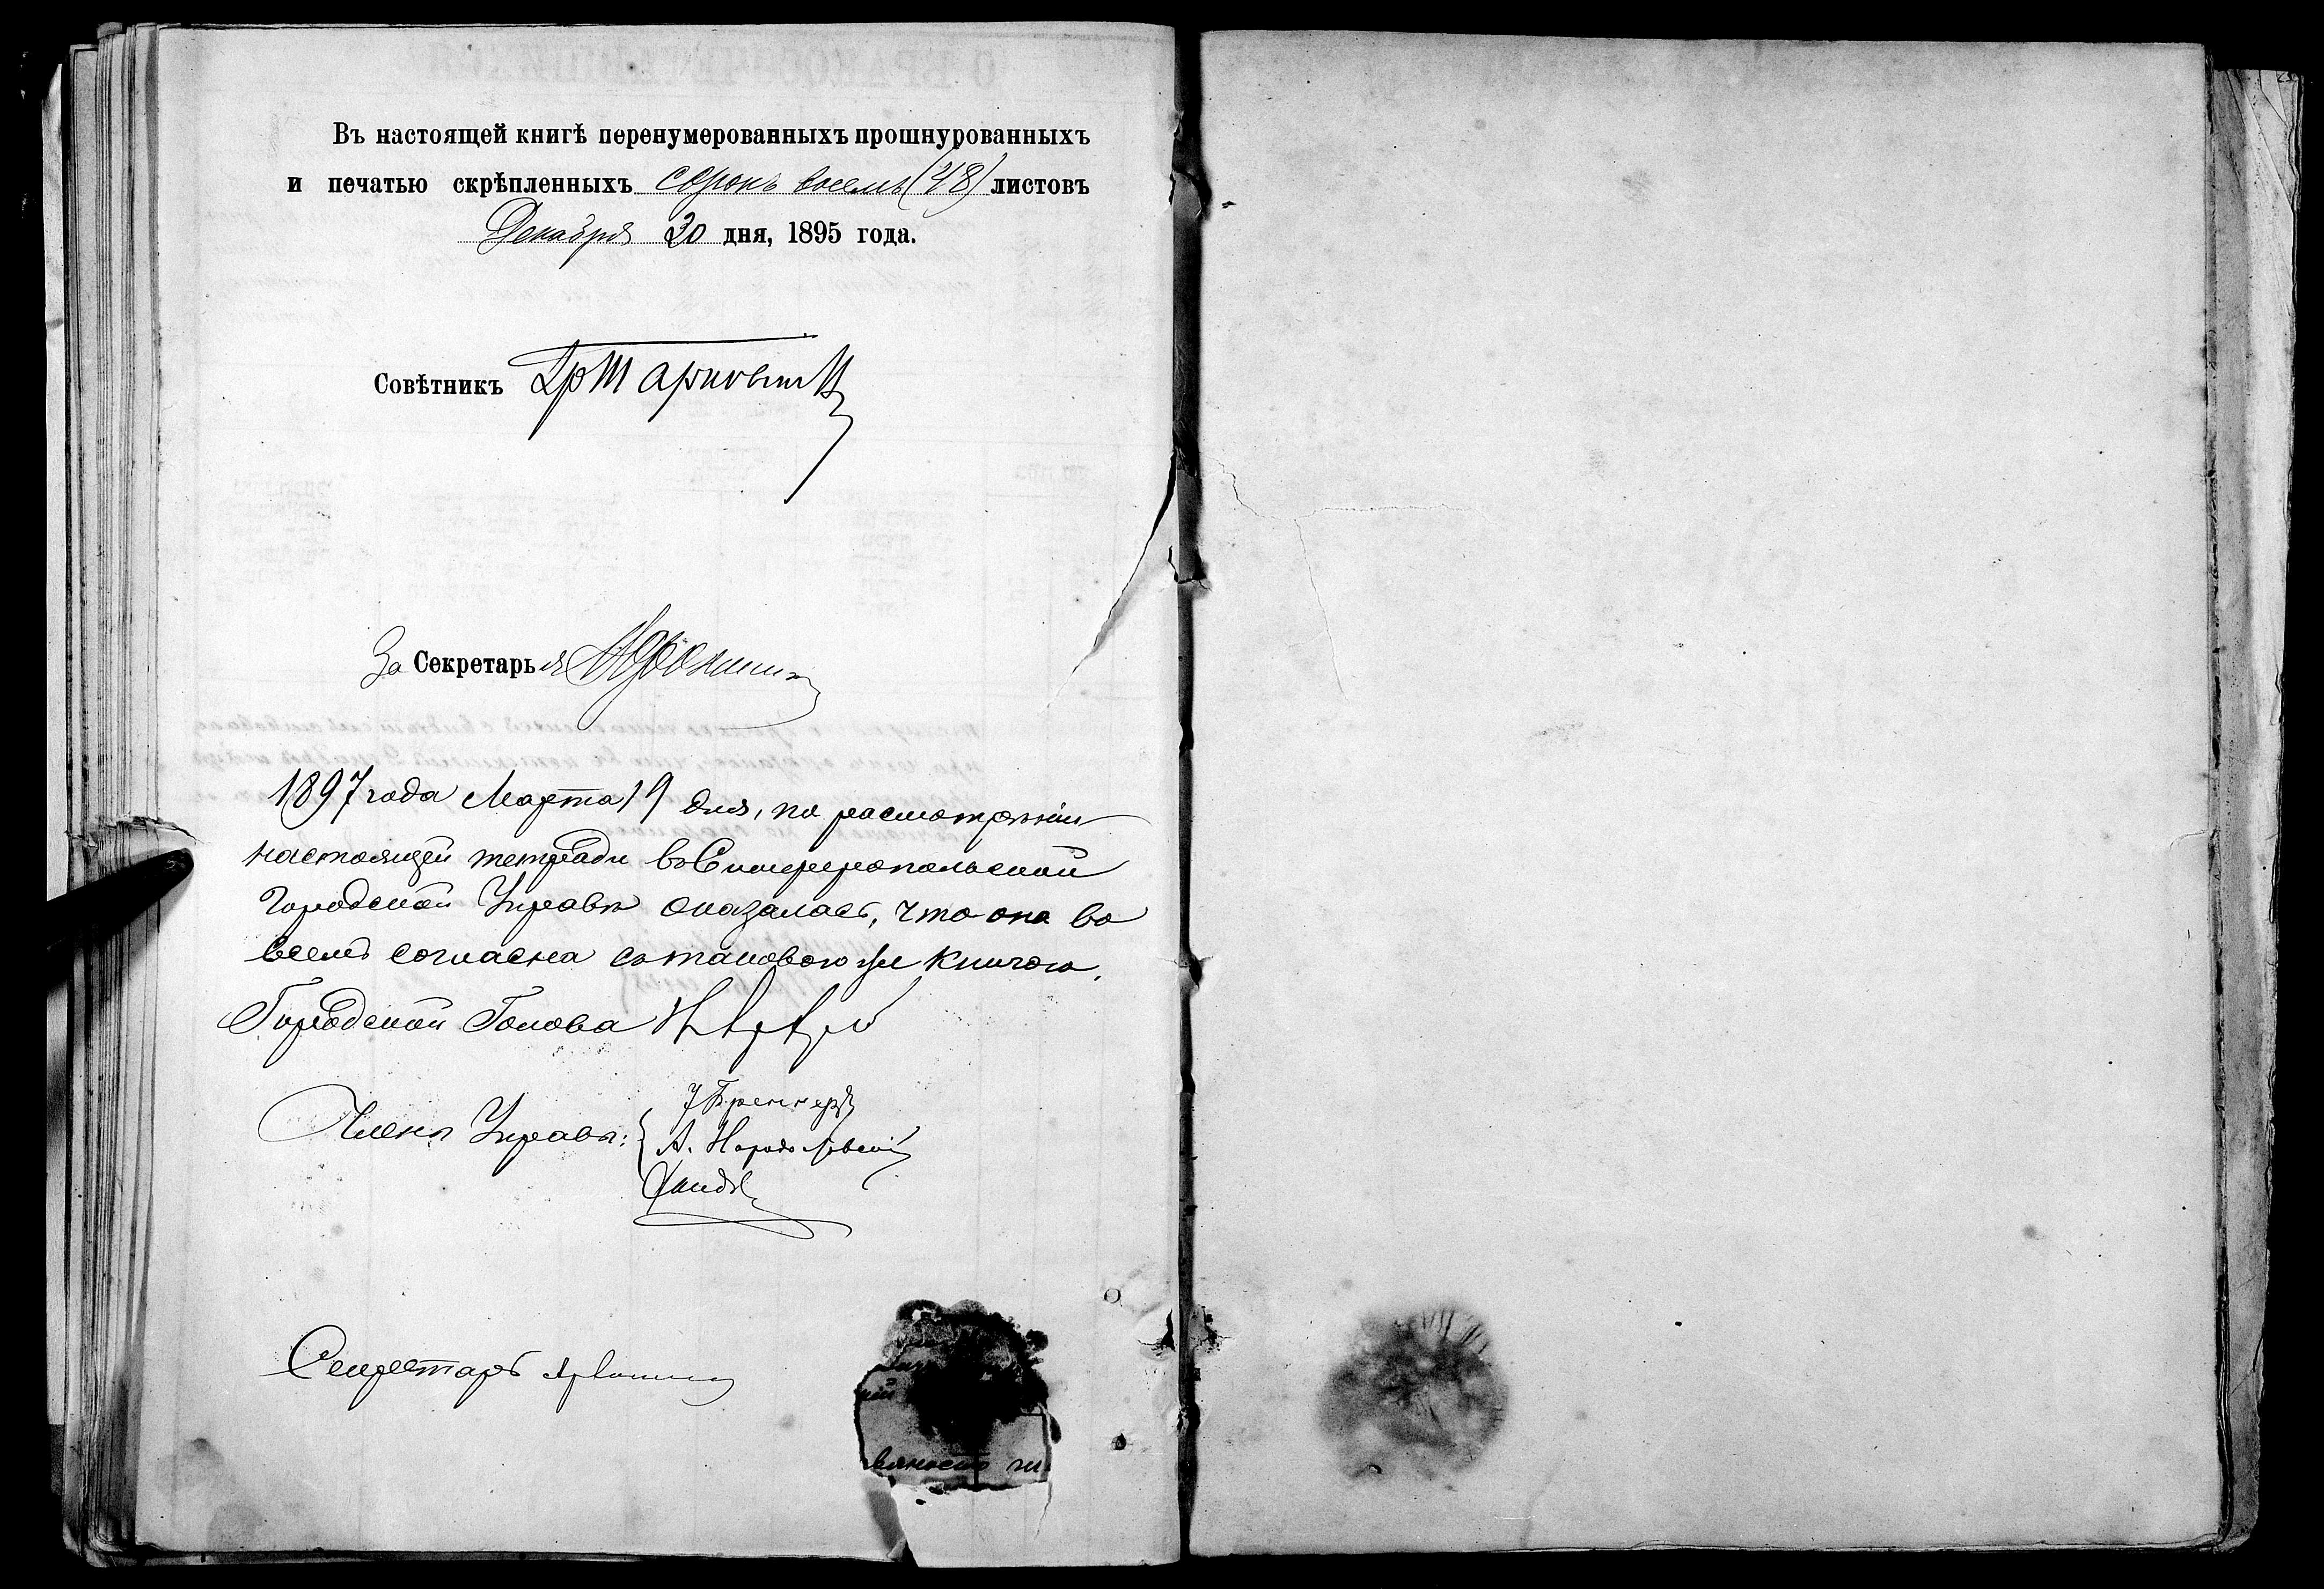 Въ настоящей книгѣ перенумерованныхъ прошнурованныхъ
и печатью скрѣпленныхъ сорокъ восемь (48) листовъ
Декабря 30 дня, 1895 года.
Совѣтникъ
За Секретаря
1897 года Марта 19 дня, по расмотрѣнiи
настоящей тетради въ Симферопольской
Городской Управѣ оказалась, что она во
всемъ согласна съ таковою же книгою.
Городской Голова
Члены Управы:
Секретарь